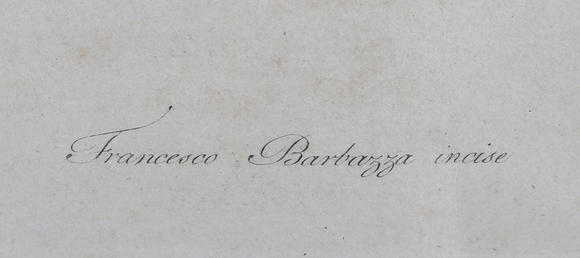 Francesco Barbazza incise